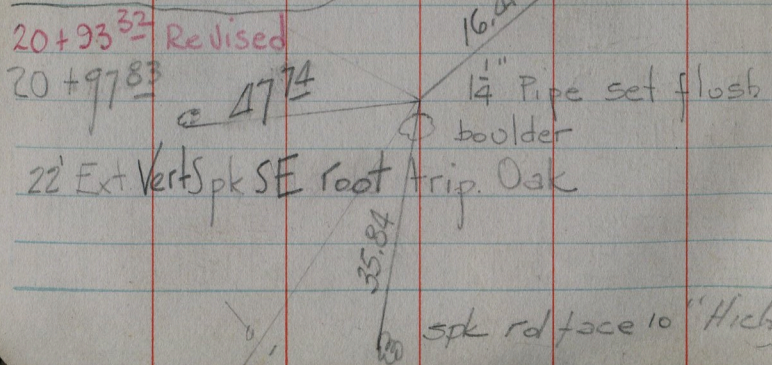 20+93 32 Revised
16.
20+97 83
47 74
1 1/4" Pipe set flush
boulder
22' Ext Vert Spk SE root trip. Oak
35.84
spk rd face 10" High